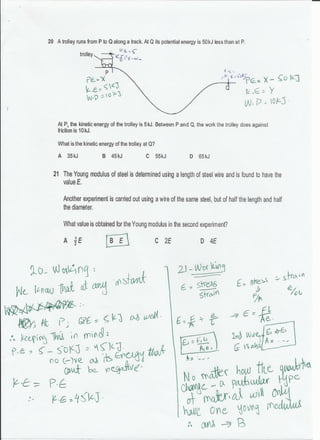 20 A trolley runs from P to Q along a track. At Q its potential energy is 50kJ less than at P.
trolley
P
PE = X
K.E = 5KJ
W.D = 10KJ
PE = X - 50KJ
K.E = Y
W.D. 10KJ.
At P, the kinetic energy of the trolley is 5kJ. Between P and Q, the work the trolley does against
friction is 10kJ.
What is the kinetic energy of the trolley at Q?
A 35kJ B 45kJ C 55kJ D 65kJ
21 The Young modulus of steel is determined using a length of steel wire and is found to have the
value E.
Another experiment is carried out using a wire of the same steel, but of half the length and half
the diameter.
What value is obtained for the Young modulus in the second experiment?
A ½E B E C 2E D 4E
20- Working:
We know that at any instant
At P, GPE = 5KJ as well.
∴ keeping this in mind:
P.E = 5 - 50KJ = 45KJ
no (-)ve as its energy that
can't be negative.
K.E = P.E
∴ K.E = 45KJ.
21- Working
E = stress
strain
E = stress ÷ strain
F/A e/L
E = F/A ÷ e/L → E = FL
Ae.
2nd wire
No matter how the quantities
change - a particular type
of material will only
have one young modulus
∴ ans → B